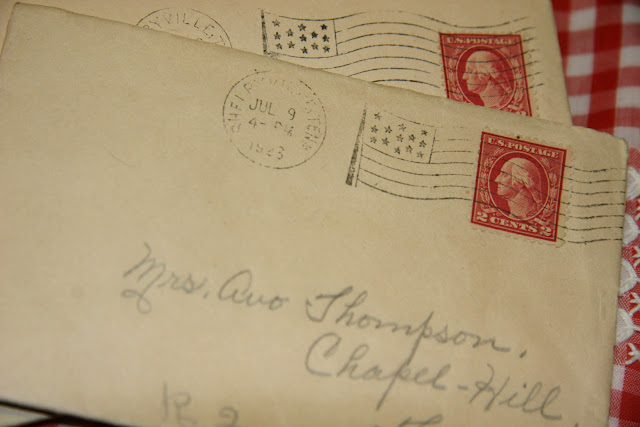 U.S. POSTAGE
JUL 9
4- PM
1923
U.S. POSTAGE
2 CENTS 2
Mrs. Avo Thompson,
Chapel-Hill,
R 2